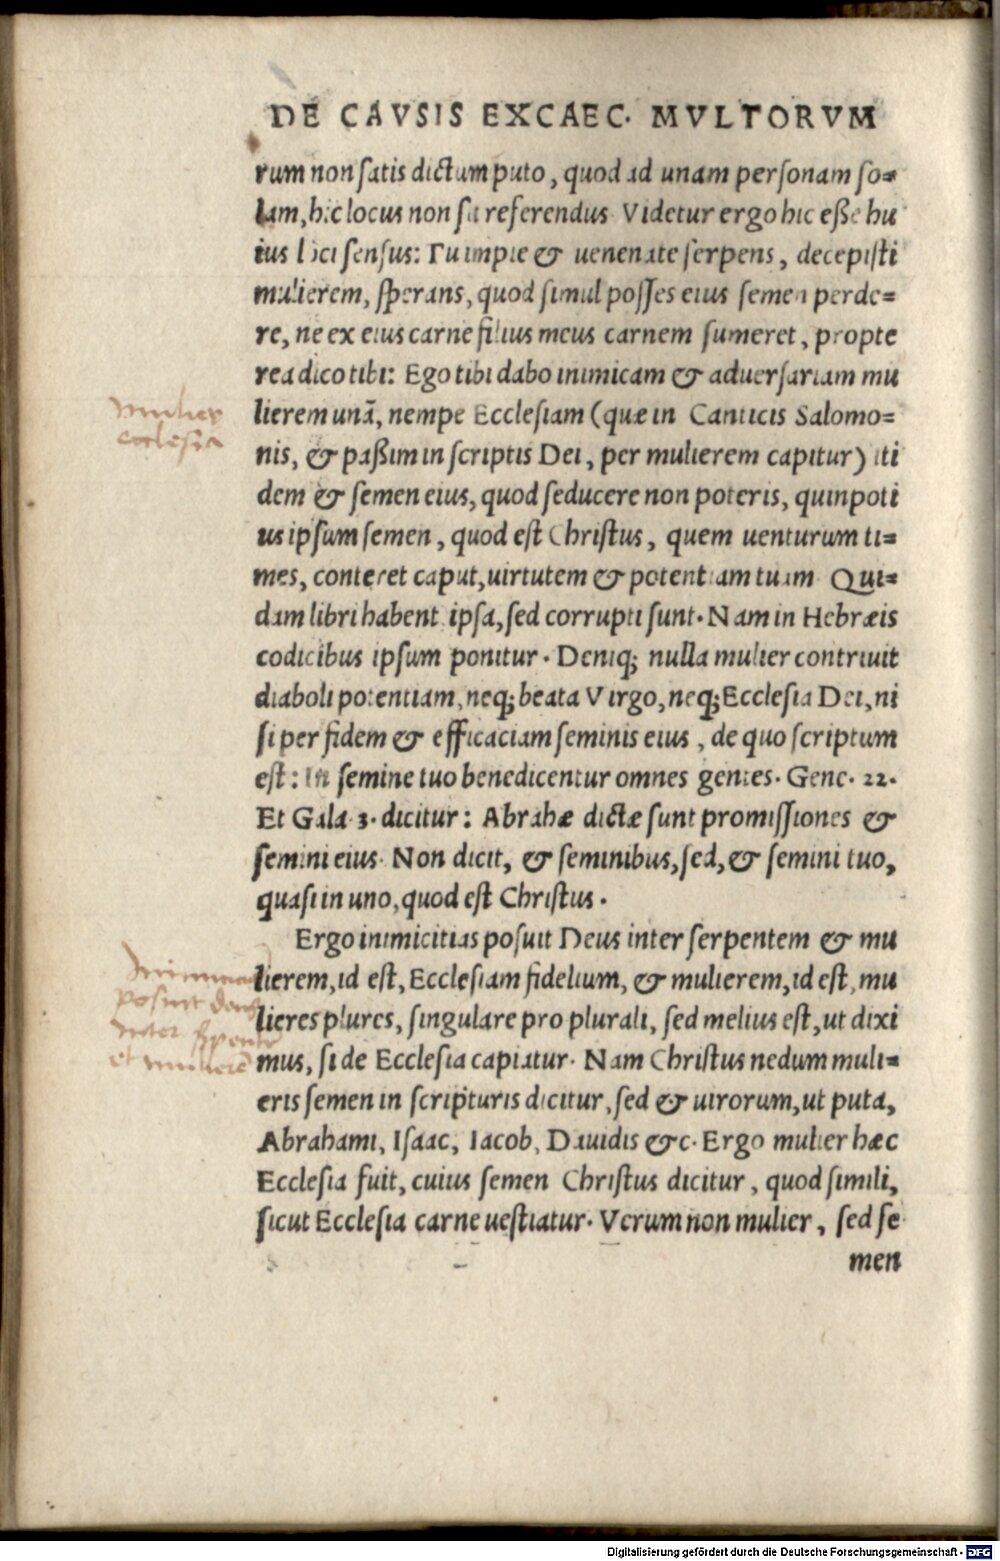 DE CAVSIS EXCAEC. MVLTORVM
rum non satis dictum puto, quod ad unam personam so=
lam, hic locus non sit referendus Videtur ergo hic esse hu
ius loci sensus: Tu impie & uenenate serpens, decepisti
mulierem, sperans, quod simul posses eius semen perde=
re, ne ex eius carne filius meus carnem sumeret, propte
rea dico tibi: Ego tibi dabo inimicam & aduersariam mu
lierem unā, nempe Ecclesiam (quæ in Canticis Salomo=
nis, & paßim in scriptis Dei, per mulierem capitur) iti
dem & semen eius, quod seducere non poteris, quinpoti
us ipsum semen, quod est Christus, quem uenturum ti=
mes, conteret caput, uirtutem & potentiam tuam Qui=
dam libri habent ipsa, sed corrupti sunt. Nam in Hebræis
codicibus ipsum ponitur. Deniq; nulla mulier contriuit
diaboli potentiam, neq; beata Virgo, neq; Ecclesia Dei, ni
si per fidem & efficaciam seminis eius, de quo scriptum
est: In semine tuo benedicentur omnes gentes. Gene. 22.
Et Gala 3. dicitur: Abrahæ dictæ sunt promissiones &
semini eius. Non dicit, & seminibus, sed, & semini tuo,
quasi in uno, quod est Christus.
Ergo inimicitias posuit Deus inter serpentem & mu
lierem, id est, Ecclesiam fidelium, & mulierem, id est, mu
lieres plures, singulare pro plurali, sed melius est, ut dixi
mus, si de Ecclesia capiatur. Nam Christus nedum muli=
eris semen in scripturis dicitur, sed & uirorum, ut puta,
Abrahami, Isaac, Iacob, Dauidis &c. Ergo mulier hæc
Ecclesia fuit, cuius semen Christus dicitur, quod simili,
sicut Ecclesia carne uestiatur. Verum non mulier, sed se
men
mulier
ecclesia
posuit deus
inter
et mulierē
Digitalisierung gefördert durch die Deutsche Forschungsgemeinschaft - DFG